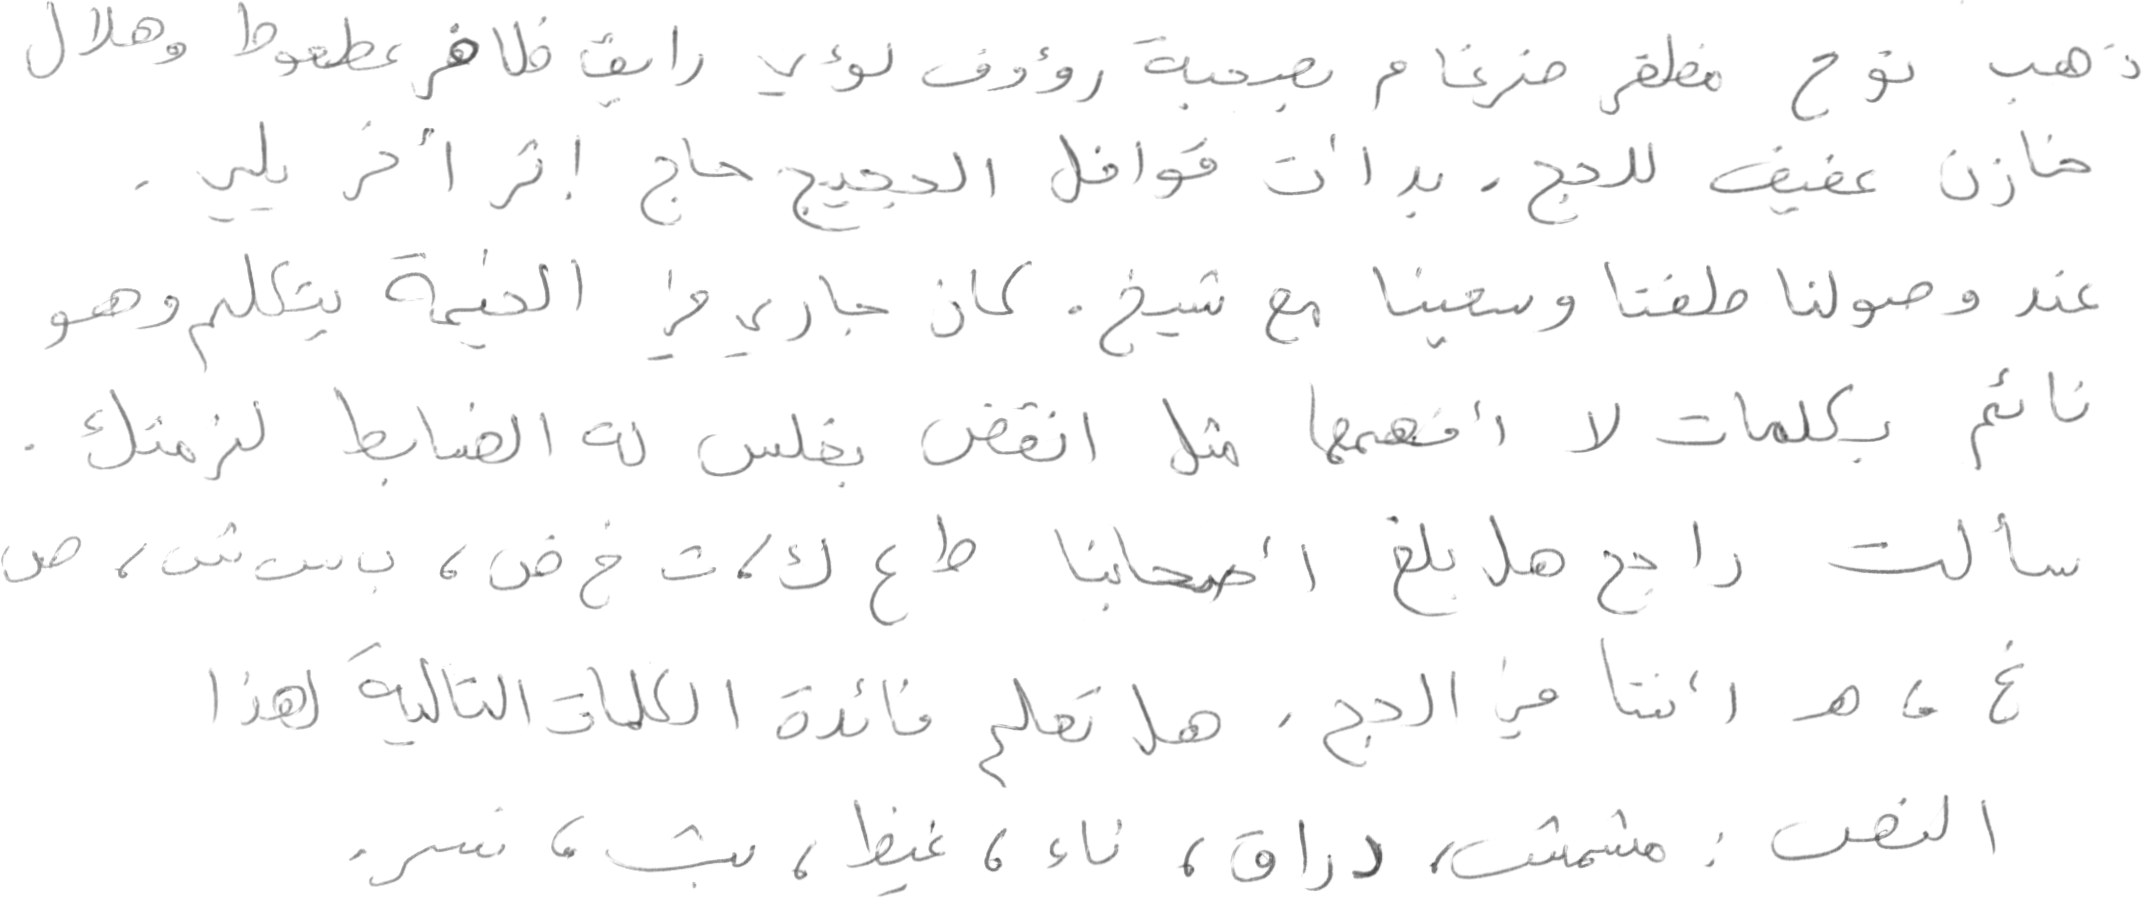 ذهب نوح مظفر ضرغام بصحبة رؤوف لؤي رايق ظافر عطعوط وهلال
خازن عفيف للحج. بدأت قوافل الحجيج حاج إثر أخر يلبي.
عند وصولنا طفنا وسعينا مع شيخ. كان جاري في الخيمة يتكلم وهو
نائم بكلمات لا أفهمها مثل انقض بغلس له الضابط لزمتك.
سألت راجح هل بلغ أصحابنا ط ع ك، ث خ ض، ب س ش، ص
غ، هـ أئنتا في الحج. هل تعلم فائدة الكلمات التالية لهذا
النص: مشمش، دراق، ناء، غيظ، بث، نسر.